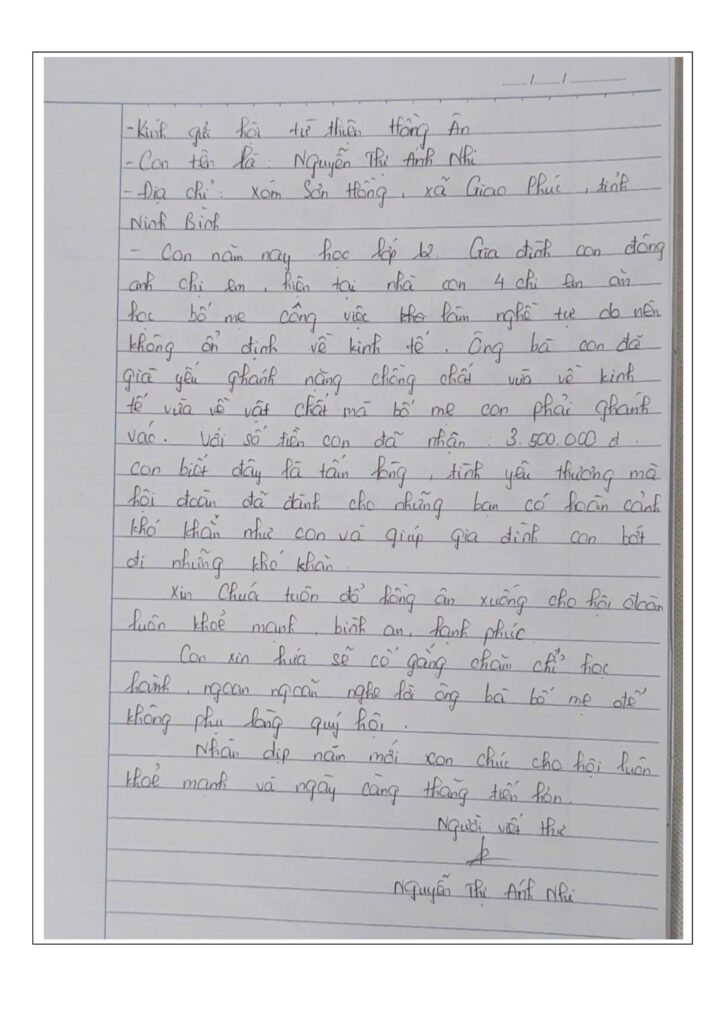 __/__/____
- Kính gửi hội từ thiện Hồng Ân
- Con tên là : Nguyễn Thị Ánh Nhi
- Địa chỉ : xóm Sơn Hồng, xã Giao Phúc, tỉnh
Ninh Bình
- Con năm nay học lớp 12 Gia đình con đông
anh chị em, hiện tại nhà con 4 chị em ăn
học bố mẹ công việc kho làm nghề tự do nên
không ổn định về kinh tế. Ông bà con đã
già yếu ghánh nặng chồng chất vừa về kinh
tế vừa về vật chất mà bố mẹ con phải ghánh
vác. Với số tiền con đã nhận : 3.500.000 đ.
con biết đây là tấm lòng, tình yêu thương mà
hội đoàn đã dành cho những bạn có hoàn cảnh
khó khăn như con và giúp gia đình con bớt
đi những khó khăn.
Xin Chúa tuôn đổ hồng ân xuống cho hội đoàn
luôn khoẻ mạnh, bình an, hạnh phúc
Con xin hứa sẽ cố gắng chăm chỉ học
hành, ngoan ngoãn nghe lời ông bà bố mẹ để
không phụ lòng quý hội.
Nhân dịp năm mới con chúc cho hội luôn
khoẻ mạnh và ngày càng thăng tiến hơn.
Người viết thư
Nguyễn Thị Ánh Nhi